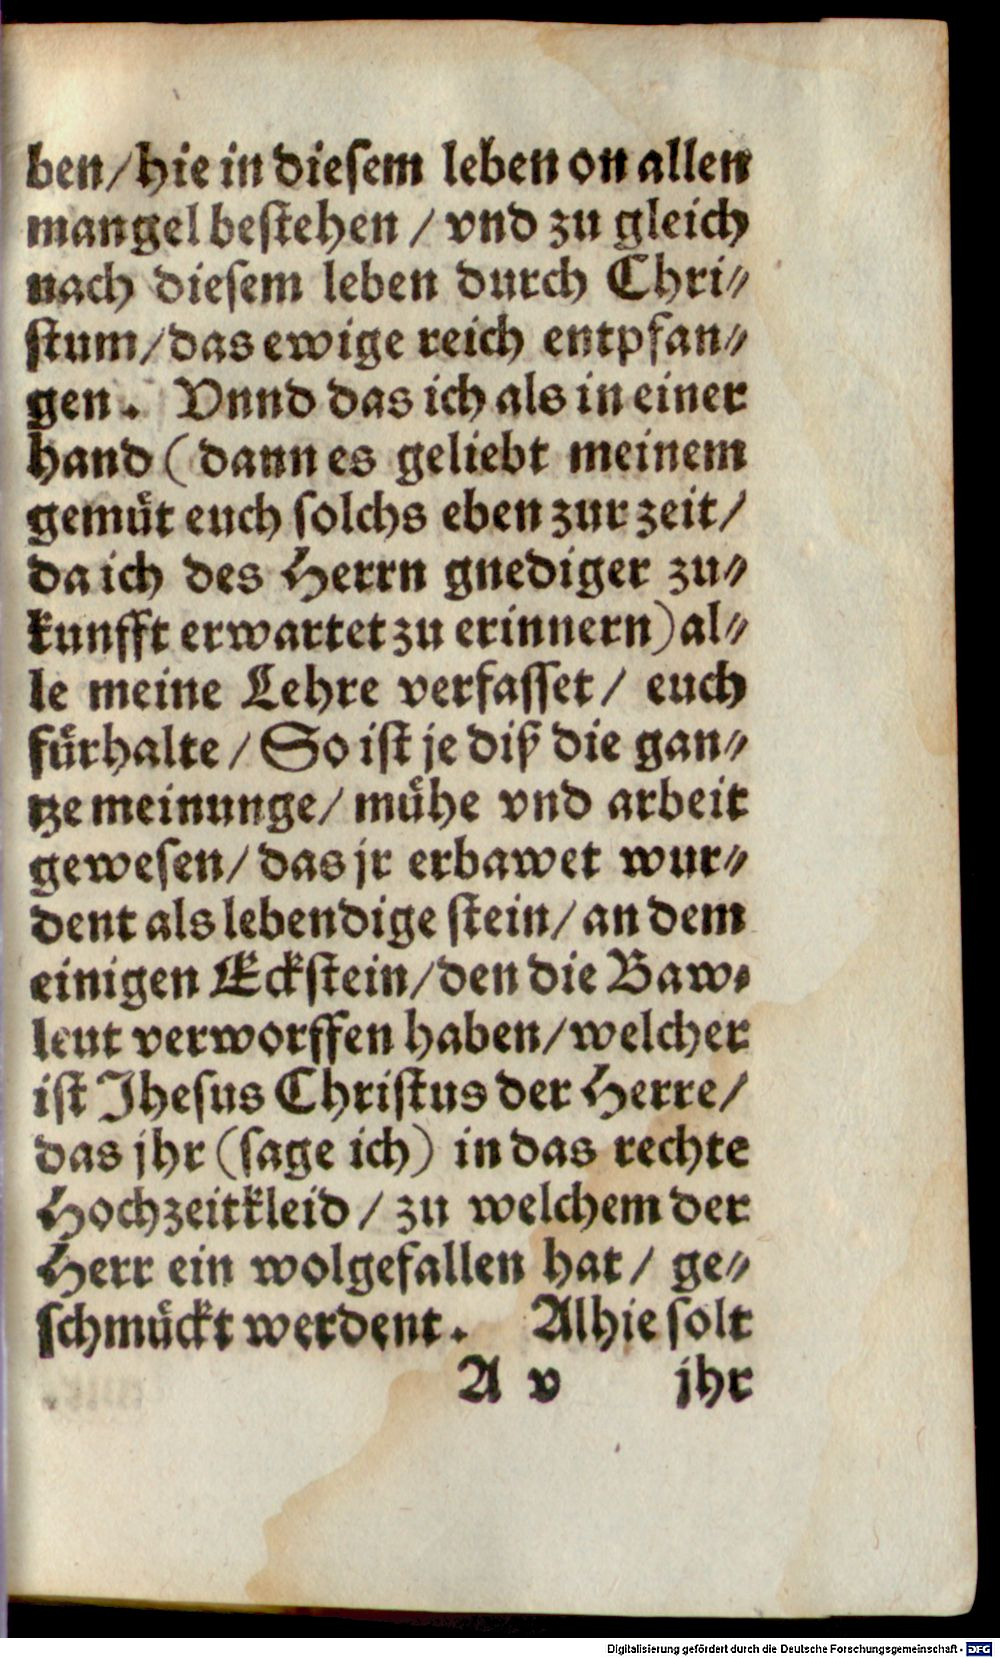 ben/hie in diesem leben on allen
mangel bestehen / vnd zu gleich
nach diesem leben durch Chri⸗
stum/das ewige reich entpfan⸗
gen. Vnnd das ich als in einer
hand (dann es geliebt meinem
gemüt euch solchs eben zur zeit/
da ich des Herrn gnediger zu⸗
kunfft erwartet zu erinnern) al⸗
le meine Lehre verfasset/ euch
fürhalte/ So ist je diß die gan⸗
tze meinunge/ mühe vnd arbeit
gewesen/ das jr erbawet wur⸗
dent als lebendige stein/ an dem
einigen Eckstein/den die Baw⸗
leut verworffen haben/welcher
ist Jhesus Christus der Herre/
das jhr (sage ich) in das rechte
Hochzeitkleid / zu welchem der
Herr ein wolgefallen hat/ ge⸗
schmückt werdent. Alhie solt
A v jhr
Digitalisierung gefördert durch die Deutsche Forschungsgemeinschaft - DFG